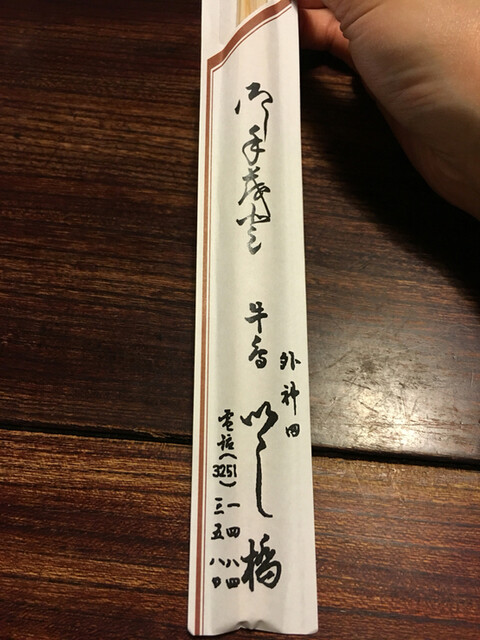 外神田
御手茂登
牛鳥
いし橋
電話(3251)
一四八四
三五八〇